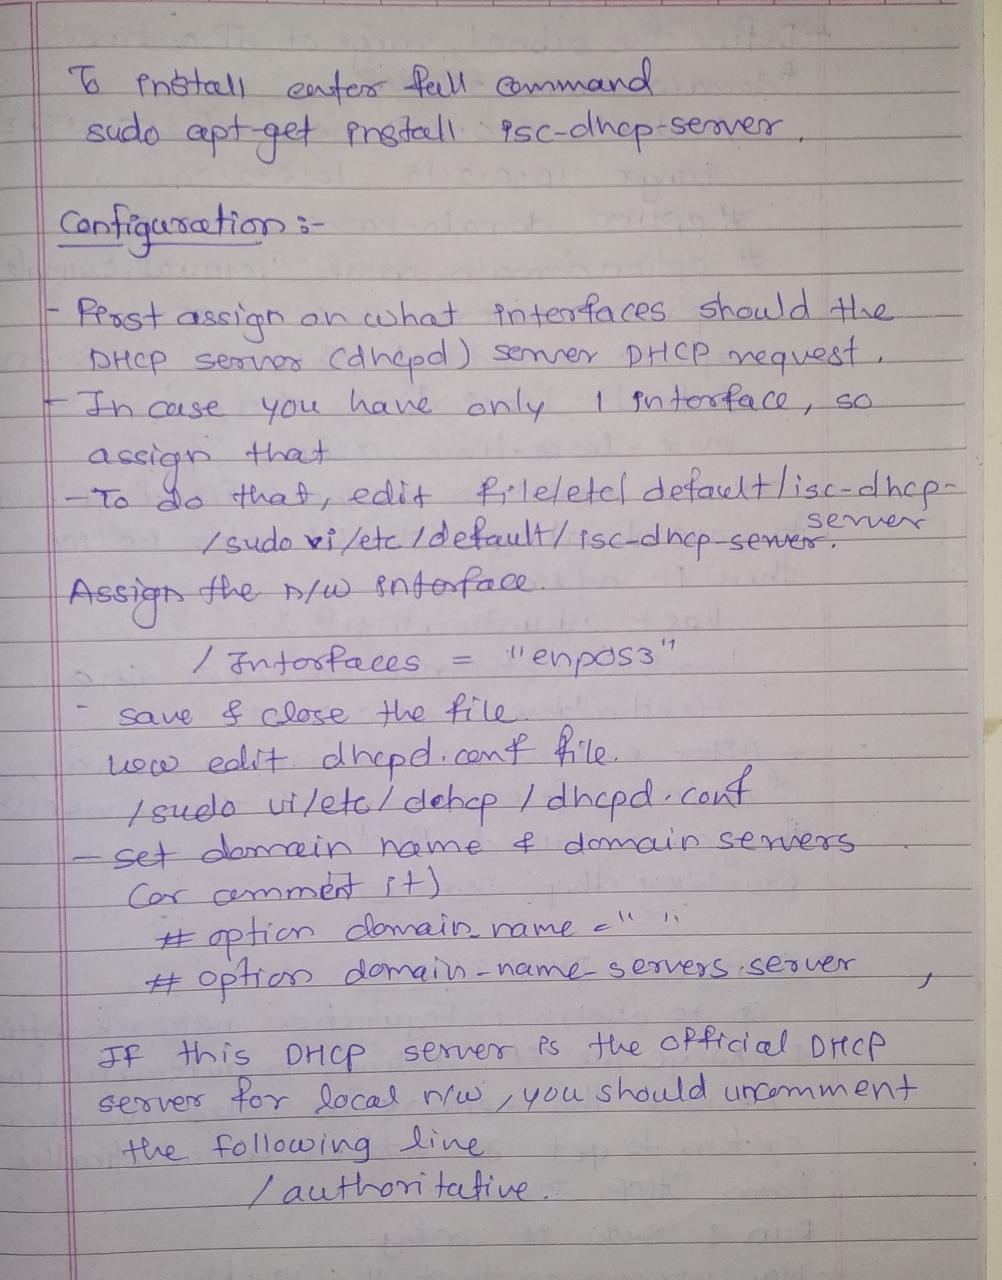 To install enter foll command
sudo apt-get install isc-dhcp-server.
Configuration :-
- First assign on what interfaces should the
DHCP server (dhcpd) server DHCP request.
- In case you have only 1 interface, so
assign that
- To do that, edit file/etc/ default/isc-dhcp-
server
/sudo vi/etc/default/isc-dhcp-server.
Assign the n/w interface.
/ Interfaces = "enpos3"
- save & close the file.
now edit dhcpd.conf file.
/sudo vi/etc/dchcp/dhcpd.conf
- set domain name & domain servers
(or comment it)
# option domain name = " "
# option domain-name-servers.server ,
If this DHCP server is the official DHCP
server for local n/w, you should uncomment
the following line
/authoritative.